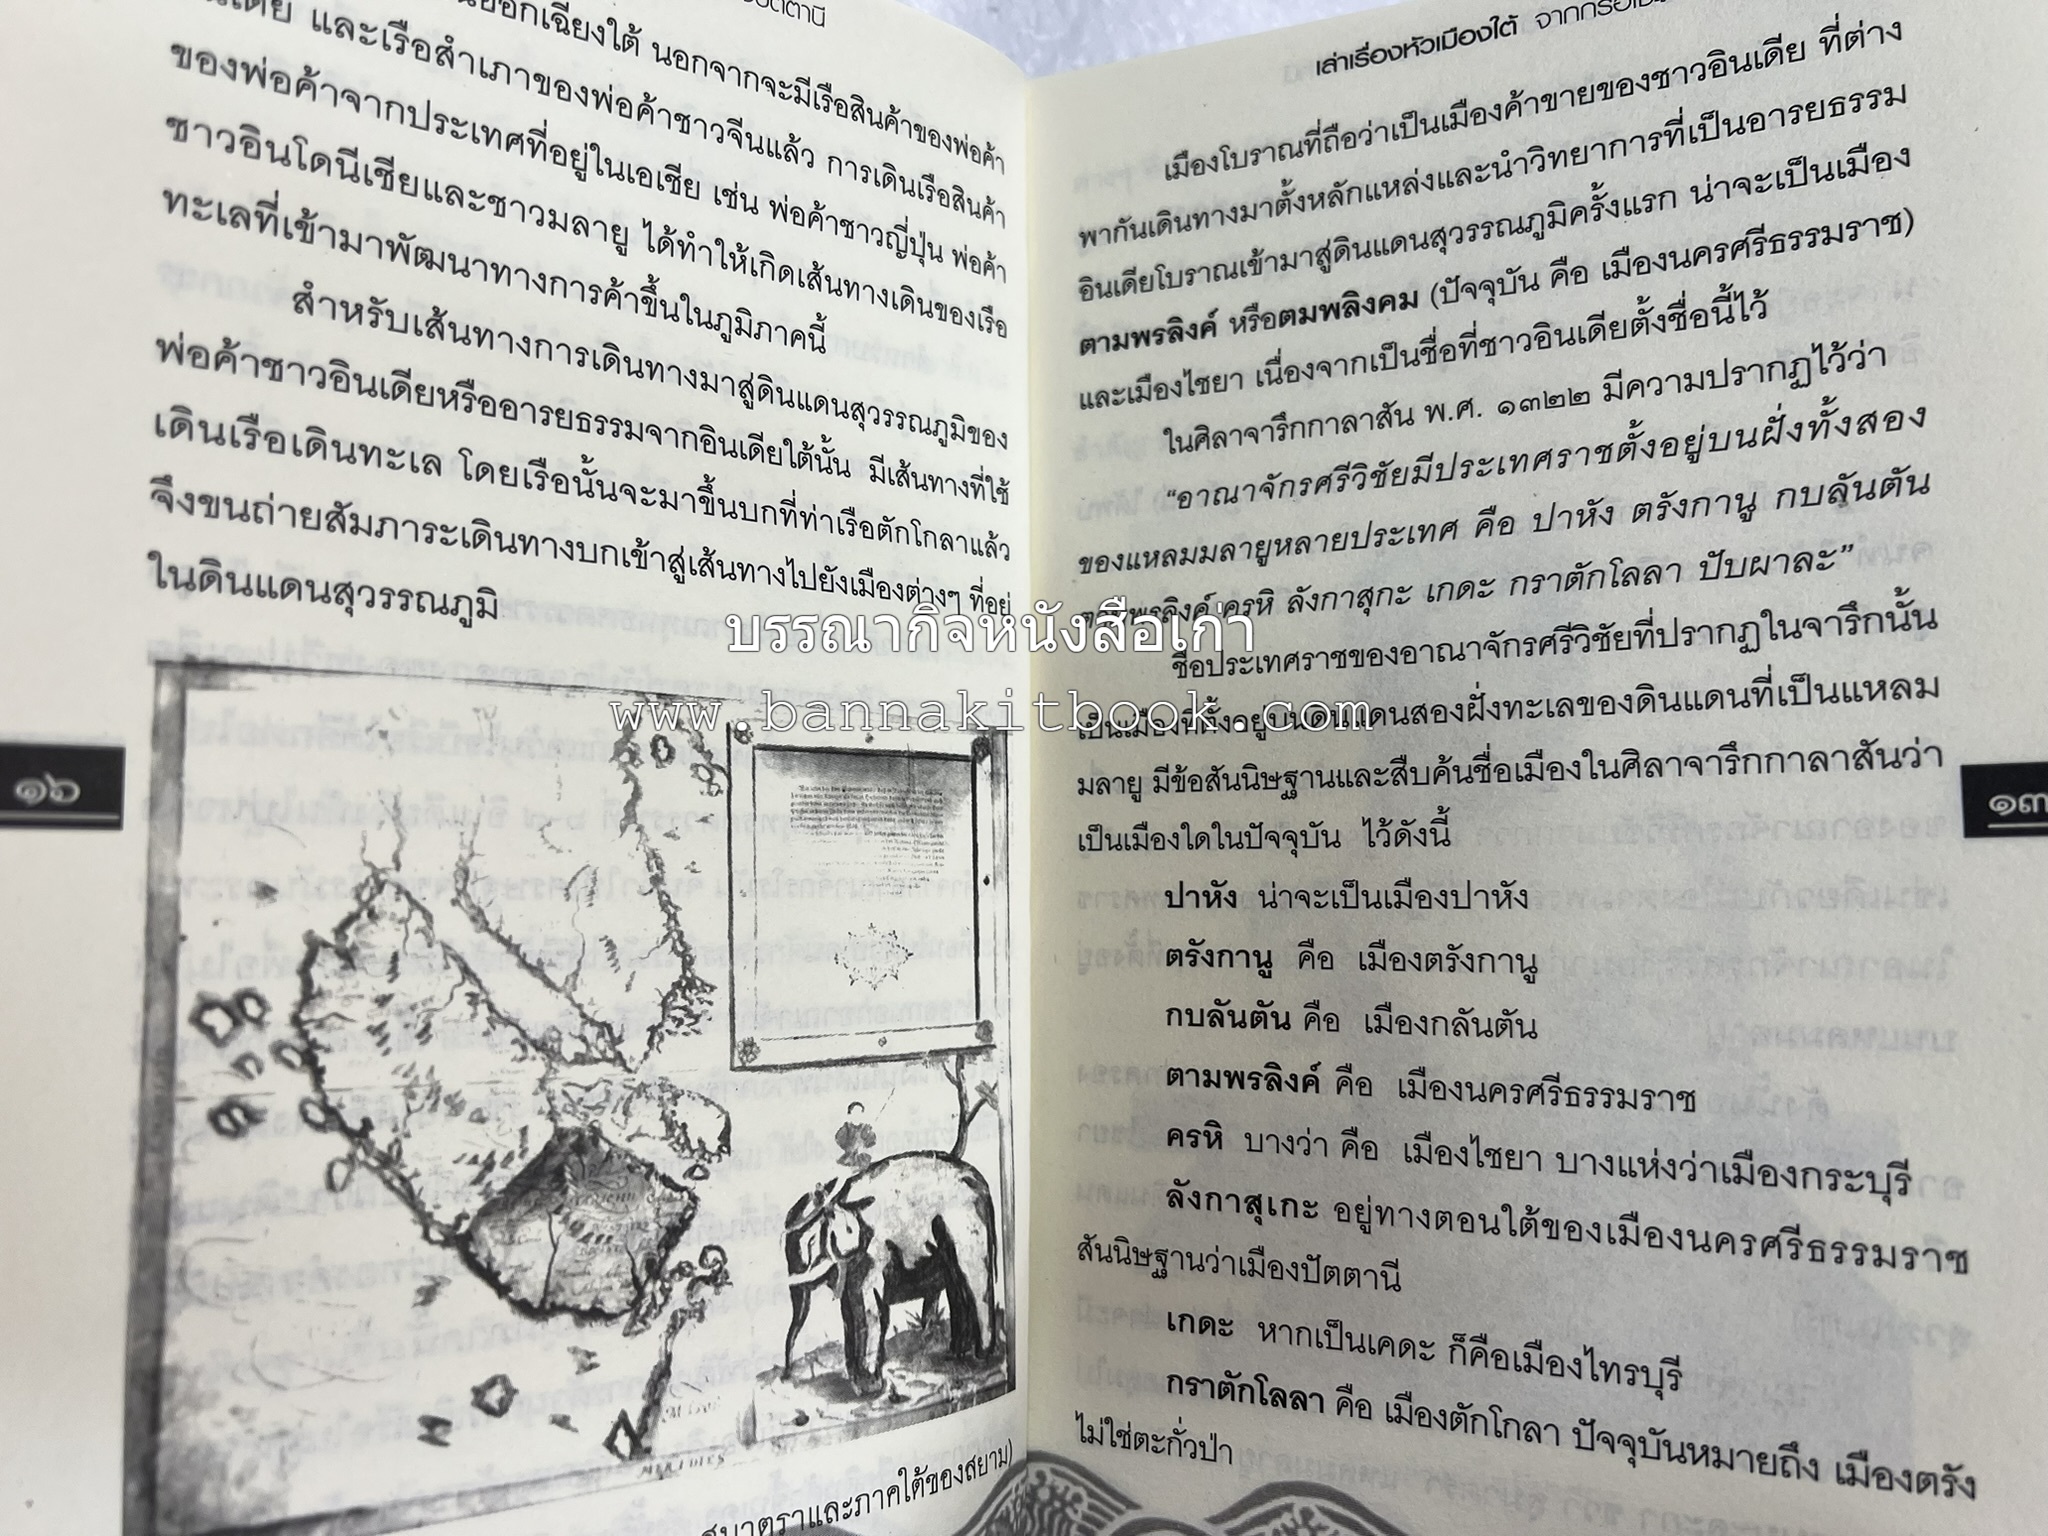 นออกเฉียงใต้ นอกจากจะมีเรือสินค้าของพ่อค้า
และเรือสำเภาของพ่อค้าชาวจีนแล้ว การเดินเรือสินค้า
ของพ่อค้าจากประเทศที่อยู่ในเอเชีย เช่น พ่อค้าชาวญี่ปุ่น พ่อค้า
ชาวอินโดนีเซียและชาวมลายู ได้ทำให้เกิดเส้นทางเดินของเรือ
ทะเลที่เข้ามาพัฒนาทางการค้าขึ้นในภูมิภาคนี้
สำหรับเส้นทางการเดินทางมาสู่ดินแดนสุวรรณภูมิของ
พ่อค้าชาวอินเดียหรืออารยธรรมจากอินเดียใต้นั้น มีเส้นทางที่ใช้
เดินเรือเดินทะเล โดยเรือนั้นจะมาขึ้นบกที่ท่าเรือตักโกลาแล้ว
จึงขนถ่ายสัมภาระเดินทางบกเข้าสู่เส้นทางไปยังเมืองต่างๆ ที่อยู่
ในดินแดนสุวรรณภูมิ
๑๖
MERIDIES
สุมาตราและภาคใต้ของสยาม)
เล่าเรื่องหัวเมืองใต้
เมืองโบราณที่ถือว่าเป็นเมืองค้าขายของชาวอินเดีย ที่ต่าง
พากันเดินทางมาตั้งหลักแหล่งและนำวิทยาการที่เป็นอารยธรรม
อินเดียโบราณเข้ามาสู่ดินแดนสุวรรณภูมิครั้งแรก น่าจะเป็นเมือง
ตามพรลิงค์ หรือตมพลิงคม (ปัจจุบัน คือ เมืองนครศรีธรรมราช)
และเมืองไชยา เนื่องจากเป็นชื่อที่ชาวอินเดียตั้งชื่อนี้ไว้
ในศิลาจารึกกาลาสัน พ.ศ. ๑๓๒๒ มีความปรากฏไว้ว่า
“อาณาจักรศรีวิชัยมีประเทศราชตั้งอยู่บนฝั่งทั้งสอง
ของแหลมมลายูหลายประเทศ คือ ปาหัง ตรังกานู กบลันตัน
ตามพรลิงค์ ครหิ ลังกาสุกะ เกดะ กราตักโลลา ปับผาละ”
ชื่อประเทศราชของอาณาจักรศรีวิชัยที่ปรากฏในจารึกนั้น
เป็นเมืองที่ตั้งอยู่บนดินแดนสองฝั่งทะเลของดินแดนที่เป็นแหลม
มลายู มีข้อสันนิษฐานและสืบค้นชื่อเมืองในศิลาจารึกกาลาสันว่า
เป็นเมืองใดในปัจจุบัน ไว้ดังนี้
ปาหัง น่าจะเป็นเมืองปาหัง
ตรังกานู คือ เมืองตรังกานู
กบลันตัน คือ เมืองกลันตัน
ตามพรลิงค์ คือ เมืองนครศรีธรรมราช
ครหิ บางว่า คือ เมืองไชยา บางแห่งว่าเมืองกระบุรี
ลังกาสุเกะ อยู่ทางตอนใต้ของเมืองนครศรีธรรมราช
สันนิษฐานว่าเมืองปัตตานี
เกดะ หากเป็นเคดะ ก็คือเมืองไทรบุรี
กราตักโลลา คือ เมืองตักโกลา ปัจจุบันหมายถึง เมืองตรัง
ไม่ใช่ตะกั่วป่า
บรรณากิจหนังสือเก่า
www.bannakitbook.com